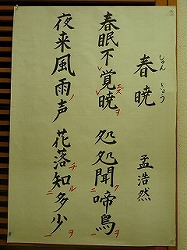 春暁
しゅん ぎょう
孟浩然
春眠不覚暁 処処聞啼鳥
夜来風雨声 花落知多少